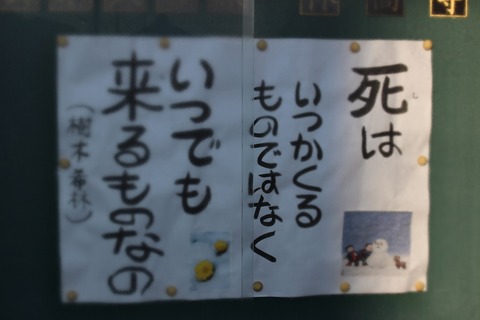 死は
いつかくる
ものではなく
いつでも
来るものなの
（樹木希林）
寺